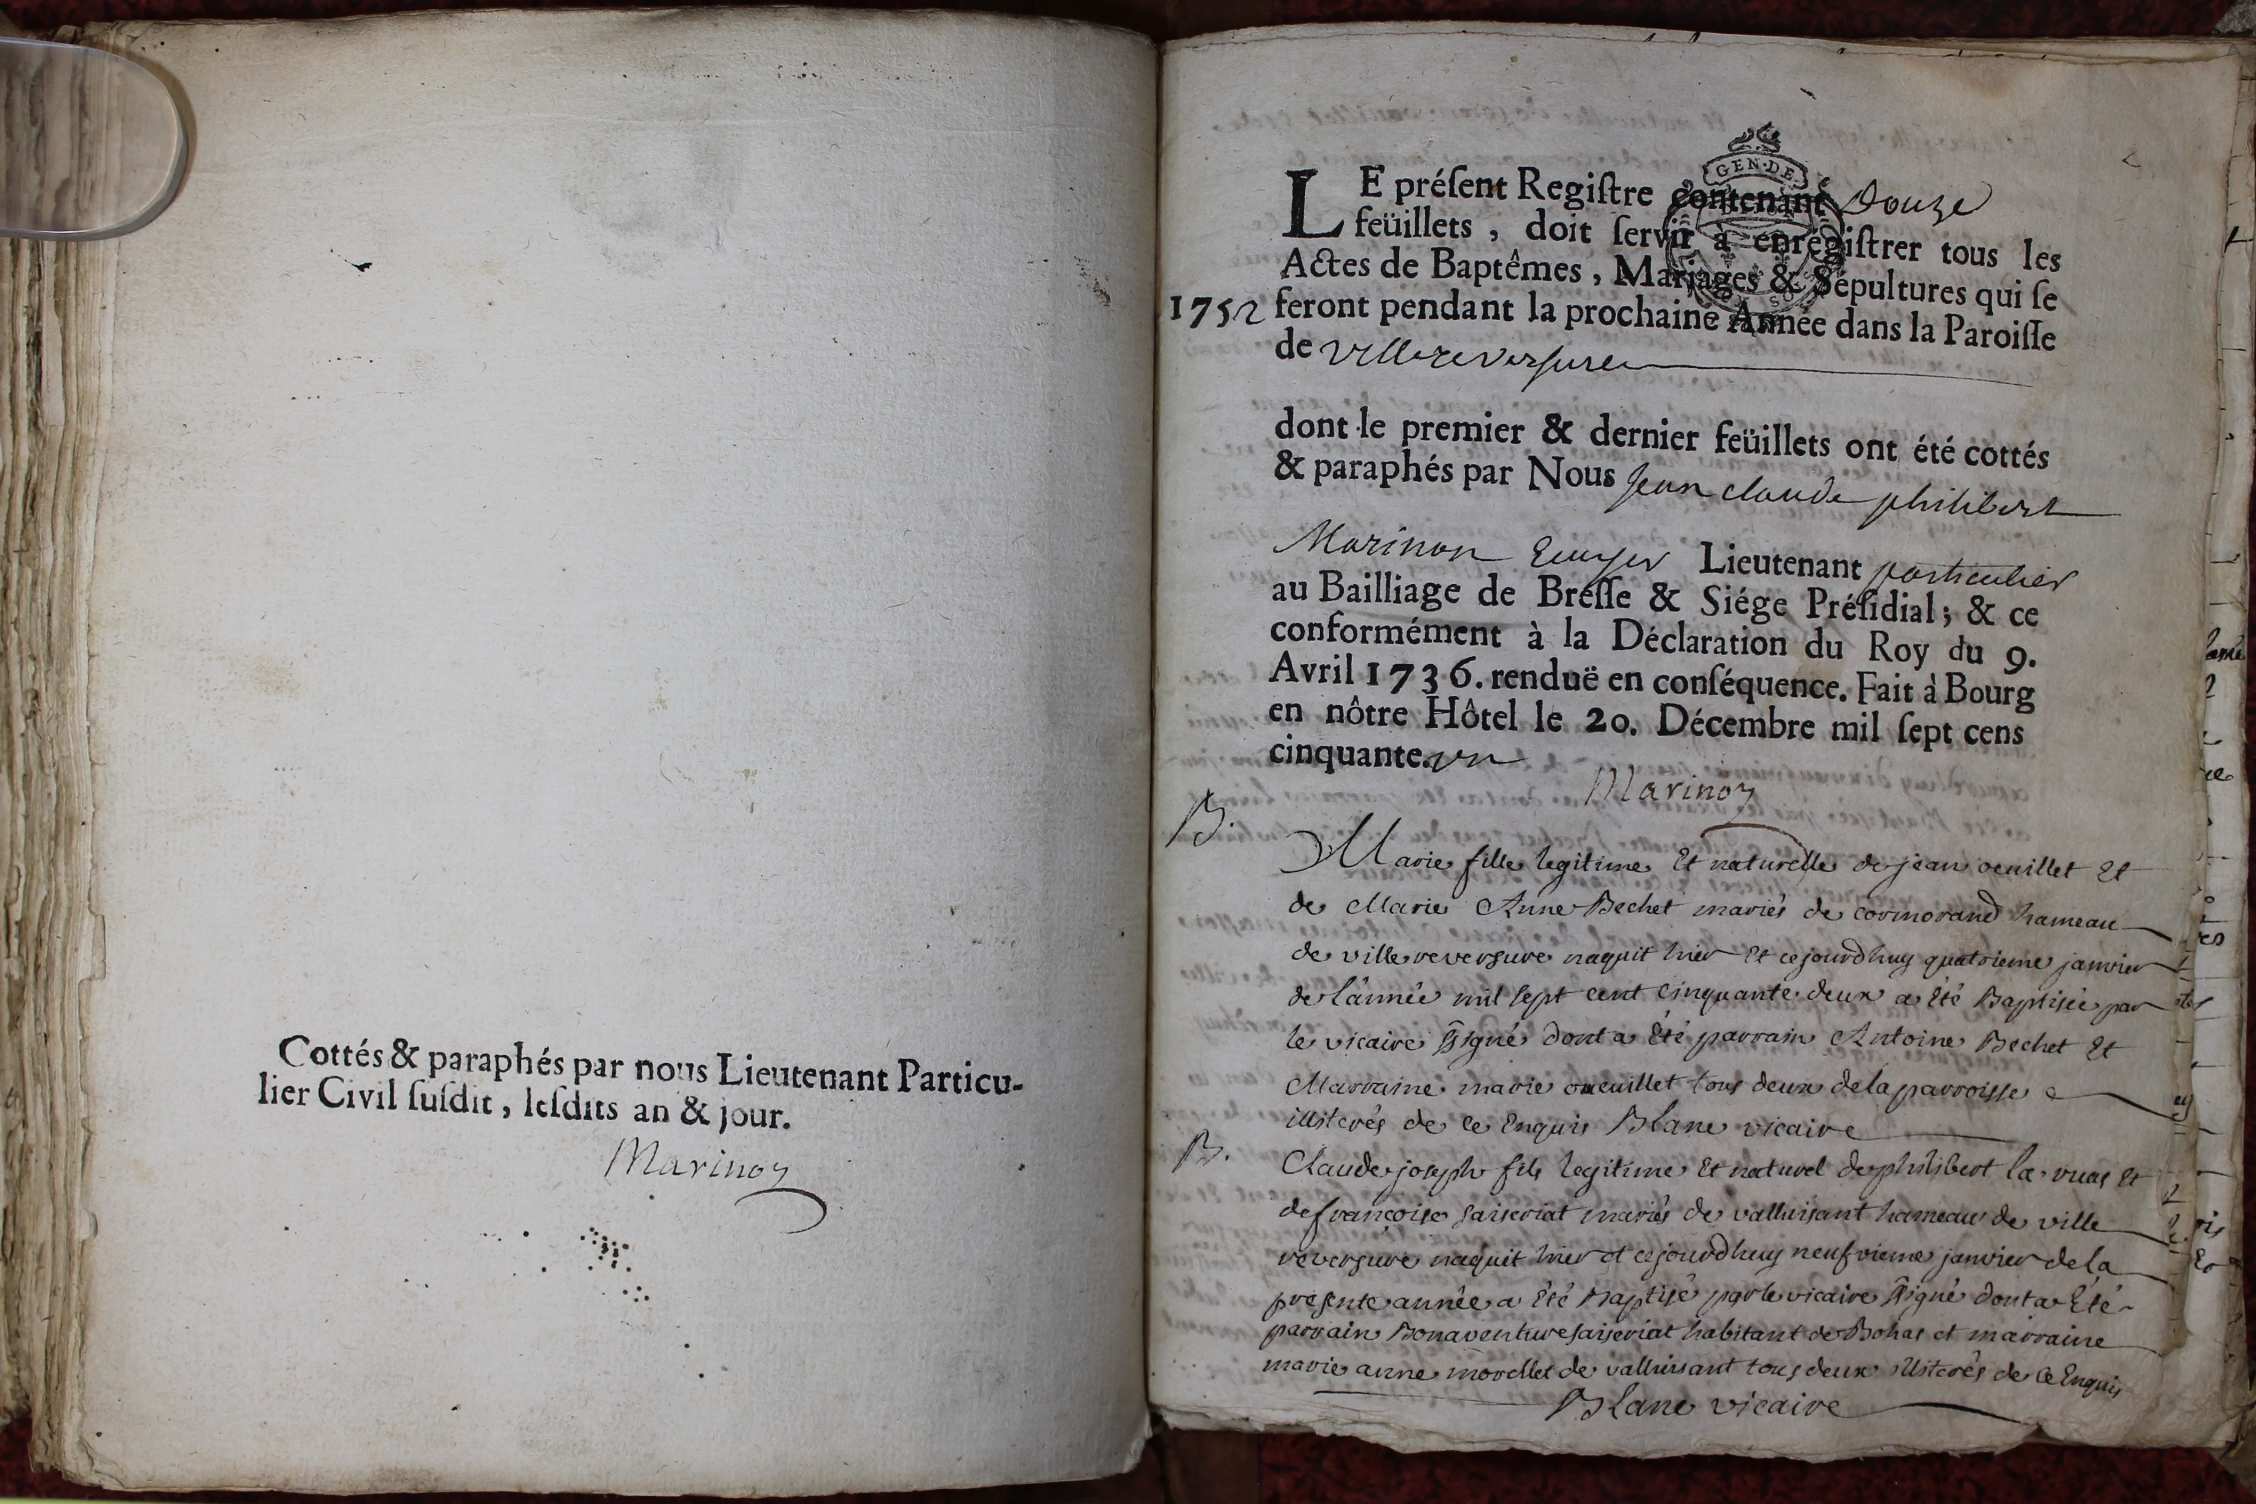 Cottés & paraphés par nous Lieutenant Particu-
lier Civil ſuſdit, leſdits an & jour.
Marinon
GEN·DE
LE préſent Regiſtre contenant Douze
feüillets, doit ſervir à enrégiſtrer tous les
Actes de Baptêmes, Mariages & Sépultures qui ſe
1752 feront pendant la prochaine Année dans la Paroiſſe
de Villereversure
dont le premier & dernier feüillets ont été cottés
& paraphés par Nous Jean claude philibert
Marinon Ecuyer Lieutenant particulier
au Bailliage de Breſſe & Siége Préſidial; & ce
conformément à la Déclaration du Roy du 9.
Avril 1736. renduë en conſéquence. Fait à Bourg
en nôtre Hôtel le 20. Décembre mil ſept cens
cinquante. un
Marinon
B.
Marie fille legitime Et naturelle de jean oeuillet Et
de Marie Anne Bechet mariés de cormorand hameau
de villereversure naquit hier Et cejourdhuy quatrieme janvier
de l'année mil sept cent cinquante deux a été Baptisée par
le vicaire ssigné dont a Eté parrain Antoine Bechet Et
Marraine marie oeuillet tous deux de la parroisse
illiterés de ce Enquis Blanc vicaire
B.
Claude joseph fils legitime Et naturel de philibert la vuas Et
de françoise saiseriat mariés de valluisant hameau de ville
reversure naquit hier et cejourdhuy neufvieme janvier de la
presente année a Eté Baptisé par le vicaire ssigné dont a Eté
parrain Bonaventure saiseriat habitant de Bohas et marraine
marie anne morellet de valluisant tous deux illiterés de ce Enquis
Blanc vicaire